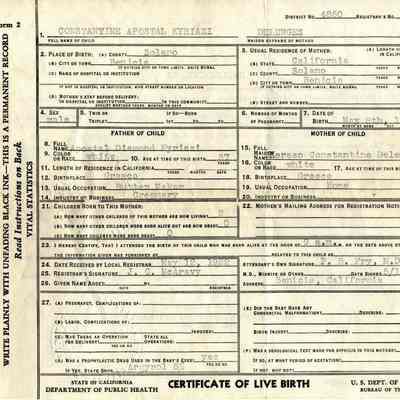 DISTRICT NO. 4860 REGISTRAR'S N
1. CONSTANTINE APOSTAL KYRIAZI
FULL NAME OF CHILD
DELENGES
MAIDEN SURNAME OF MOTHER
2. PLACE OF BIRTH: (A) COUNTY Solano
(B) CITY OR TOWN Benicia
IF OUTSIDE CITY OR TOWN LIMITS, WRITE RURAL
(C) NAME OF HOSPITAL OR INSTITUTION
IF NOT IN HOSPITAL OR INSTITUTION, GIVE STREET NUMBER OR LOCATION
(D) MOTHER'S STAY BEFORE DELIVERY:
IN HOSPITAL OR INSTITUTION IN THIS COMMUNITY
3. USUAL RESIDENCE OF MOTHER:
(A) STATE California
(B) COUNTY Solano
(C) CITY OR TOWN Benicia
IF OUTSIDE CITY OR TOWN LIMITS, WRITE RURAL
(D) STREET AND NUMBER
4. SEX male
5. TWIN OR TRIPLET IF SO—BORN
6. NUMBER MONTHS
7. DATE OF BIRTH May 8th, 1
FATHER OF CHILD
MOTHER OF CHILD
8. FULL NAME Apostal Diamond Kyriazi
9. COLOR OR RACE white 10. AGE AT TIME OF THIS BIRTH 37 YRS.
11. LENGTH OF RESIDENCE IN CALIFORNIA
12. BIRTHPLACE Greece
13. USUAL OCCUPATION Butter Maker
14. INDUSTRY OR BUSINESS Creamery
15. FULL MAIDEN NAME Constantine Dele
16. COLOR OR RACE white 17.
18. BIRTHPLACE Greece
19. USUAL OCCUPATION Home
20. INDUSTRY OR BUSINESS
21. CHILDREN BORN TO THIS MOTHER:
(A) HOW MANY OTHER CHILDREN OF THIS MOTHER ARE NOW LIVING?
(B) HOW MANY OTHER CHILDREN WERE BORN ALIVE BUT ARE NOW DEAD? 0
(C) HOW MANY CHILDREN WERE BORN DEAD? 0
22. MOTHER'S MAILING ADDRESS FOR REGISTRATION NOTI
23. I HEREBY CERTIFY, THAT I ATTENDED THE BIRTH OF THIS CHILD WHO WAS BORN ALIVE AT THE HOUR OF 9 a.m. ON THE DATE ABOVE
THE INFORMATION GIVEN WAS FURNISHED BY RELATED TO THIS CHILD AS
24. DATE RECEIVED BY LOCAL REGISTRAR May 12, 1922
25. REGISTRAR'S SIGNATURE J. C. McAravy
26. GIVEN NAME ADDED BY REGISTRAR
ATTENDANT'S OWN SIGNATURE P. B. Fry, M.D.
M.D., MIDWIFE OR OTHER DATE SIGNED 5/1
ADDRESS Benicia, California
27. (A) PREGNANCY, COMPLICATIONS OF:
(B) LABOR, COMPLICATIONS OF: INDUCED?
(C) WAS THERE AN OPERATION FOR DELIVERY? STATE ALL OPERATIONS
(D) WAS A PROPHYLACTIC DRUG USED IN THE BABY'S EYES? yes
IF YES, STATE DRUG Argyrol
(E) DID THE BABY HAVE ANY CONGENITAL MALFORMATION? DESCRIBE:
BIRTH INJURY? DESCRIBE:
(F) WAS A SEROLOGICAL TEST MADE FOR SYPHILIS IN THIS MOTHER?
IF SO, AT WHAT PERIOD OF GESTATION?
IF NOT, WHY NOT?
STATE OF CALIFORNIA
DEPARTMENT OF PUBLIC HEALTH
CERTIFICATE OF LIVE BIRTH
U. S. DEPT. OF
BUREAU OF TH
orm 2
WRITE PLAINLY WITH UNFADING BLACK INK—THIS IS A PERMANENT RECORD
Read Instructions on Back
VITAL STATISTICS